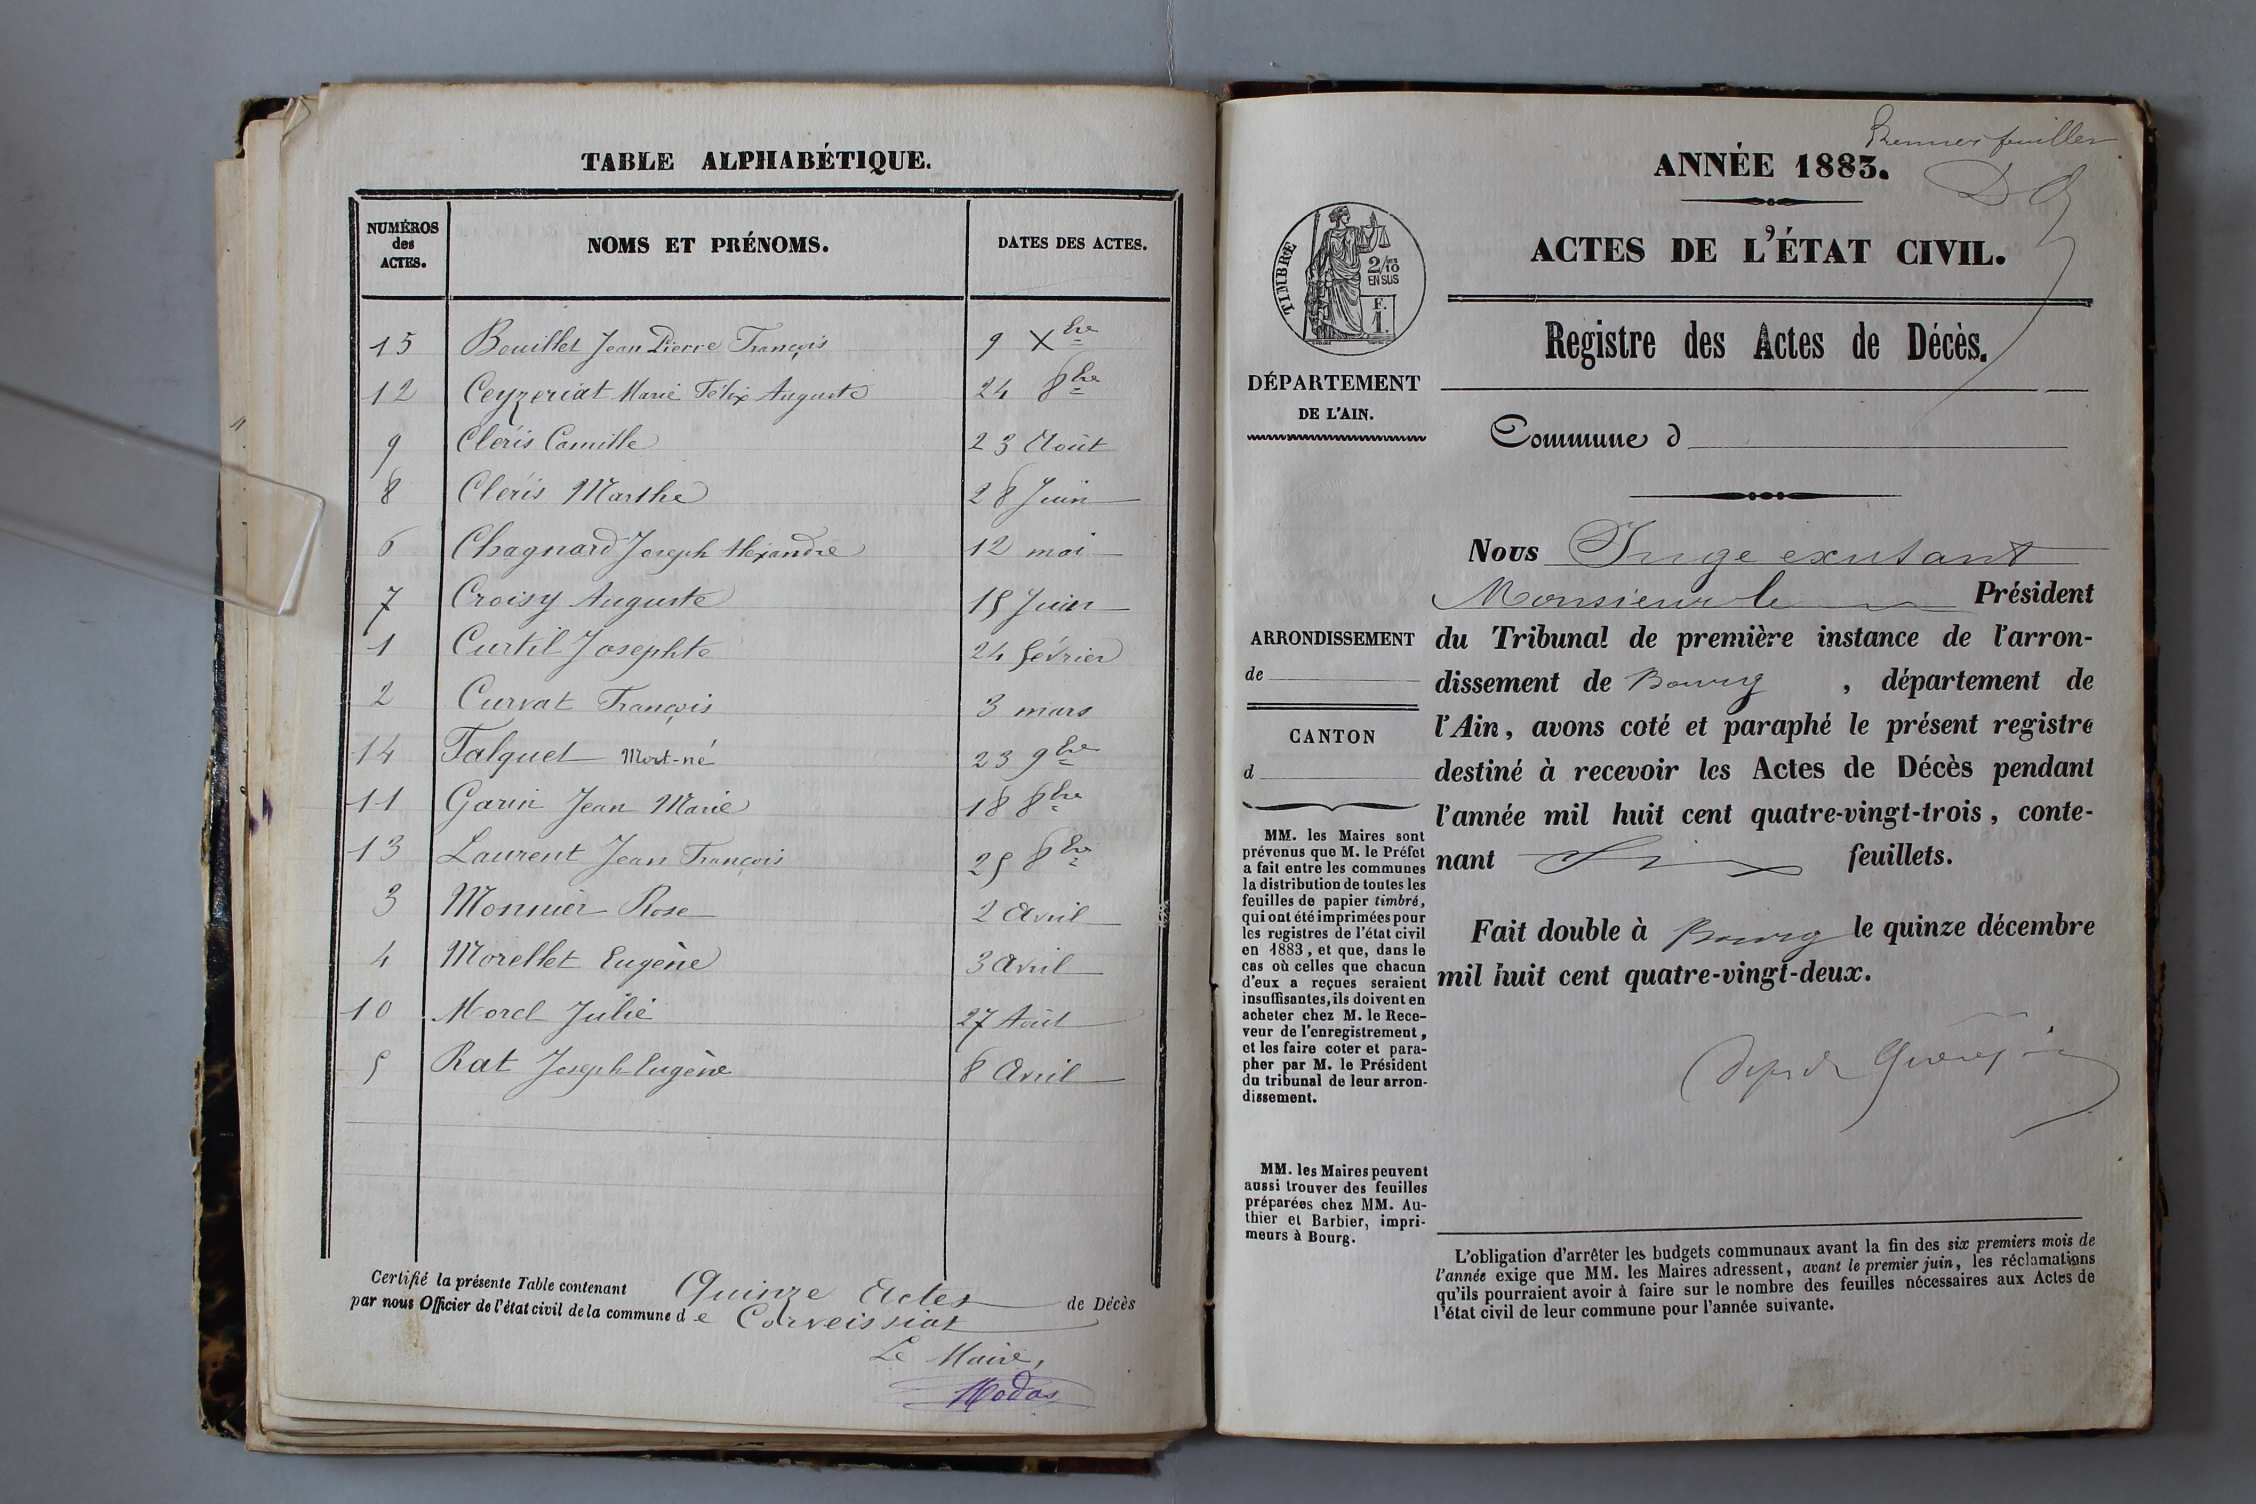 TABLE ALPHABÉTIQUE.
NUMÉROS des ACTES. NOMS ET PRÉNOMS. DATES DES ACTES.
15 Bouillet Jean Pierre François 9 Xbre
12 Ceyzeriat Marie Félix Auguste 24 8bre
9 Cléris Camille 23 Août
8 Cléris Marthe 28 Juin
6 Chagnard Joseph Alexandre 12 mai
7 Croisy Auguste 15 Juin
1 Curtil Josephte 24 février
2 Curvat François 3 mars
14 Falquet Mort-né 23 9bre
11 Garin Jean Marie 18 8bre
13 Laurent Jean François 25 8bre
3 Monnier Rose 2 Avril
4 Morellet Eugène 3 Avril
10 Morel Julie 27 Août
5 Rat Joseph Eugène 8 Avril
Certifié la présente Table contenant Quinze Actes de Décès
par nous Officier de l'état civil de la commune de Corveissiat
Le Maire,
Hodas
Premier feuillet
ANNÉE 1883.
ACTES DE L'ÉTAT CIVIL.
Registre des Actes de Décès.
Commune d
TIMBRE
2/10 EN SUS
F. 1.
DÉPARTEMENT
DE L'AIN.
ARRONDISSEMENT
de
CANTON
d
MM. les Maires sont
prévenus que M. le Préfet
a fait entre les communes
la distribution de toutes les
feuilles de papier timbré,
qui ont été imprimées pour
les registres de l'état civil
en 1883, et que, dans le
cas où celles que chacun
d'eux a reçues seraient
insuffisantes, ils doivent en
acheter chez M. le Rece-
veur de l'enregistrement,
et les faire coter et para-
pher par M. le Président
du tribunal de leur arron-
dissement.
MM. les Maires peuvent
aussi trouver des feuilles
préparées chez MM. Au-
thier et Barbier, impri-
meurs à Bourg.
Nous Juge exutant
Monsieur le Président
du Tribunal de première instance de l'arron-
dissement de Bourg, département de
l'Ain, avons coté et paraphé le présent registre
destiné à recevoir les Actes de Décès pendant
l'année mil huit cent quatre-vingt-trois, conte-
nant Six feuillets.
Fait double à Bourg le quinze décembre
mil huit cent quatre-vingt-deux.
L'obligation d'arrêter les budgets communaux avant la fin des six premiers mois de
l'année exige que MM. les Maires adressent, avant le premier juin, les réclamations
qu'ils pourraient avoir à faire sur le nombre des feuilles nécessaires aux Actes de
l'état civil de leur commune pour l'année suivante.